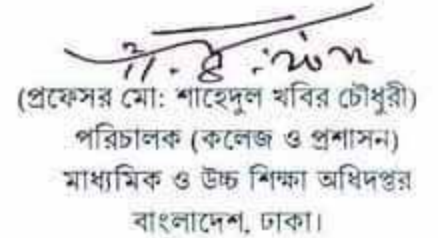 (প্রফেসর মো: শাহেদুল খবির চৌধুরী)
পরিচালক (কলেজ ও প্রশাসন)
মাধ্যমিক ও উচ্চ শিক্ষা অধিদপ্তর
বাংলাদেশ, ঢাকা।